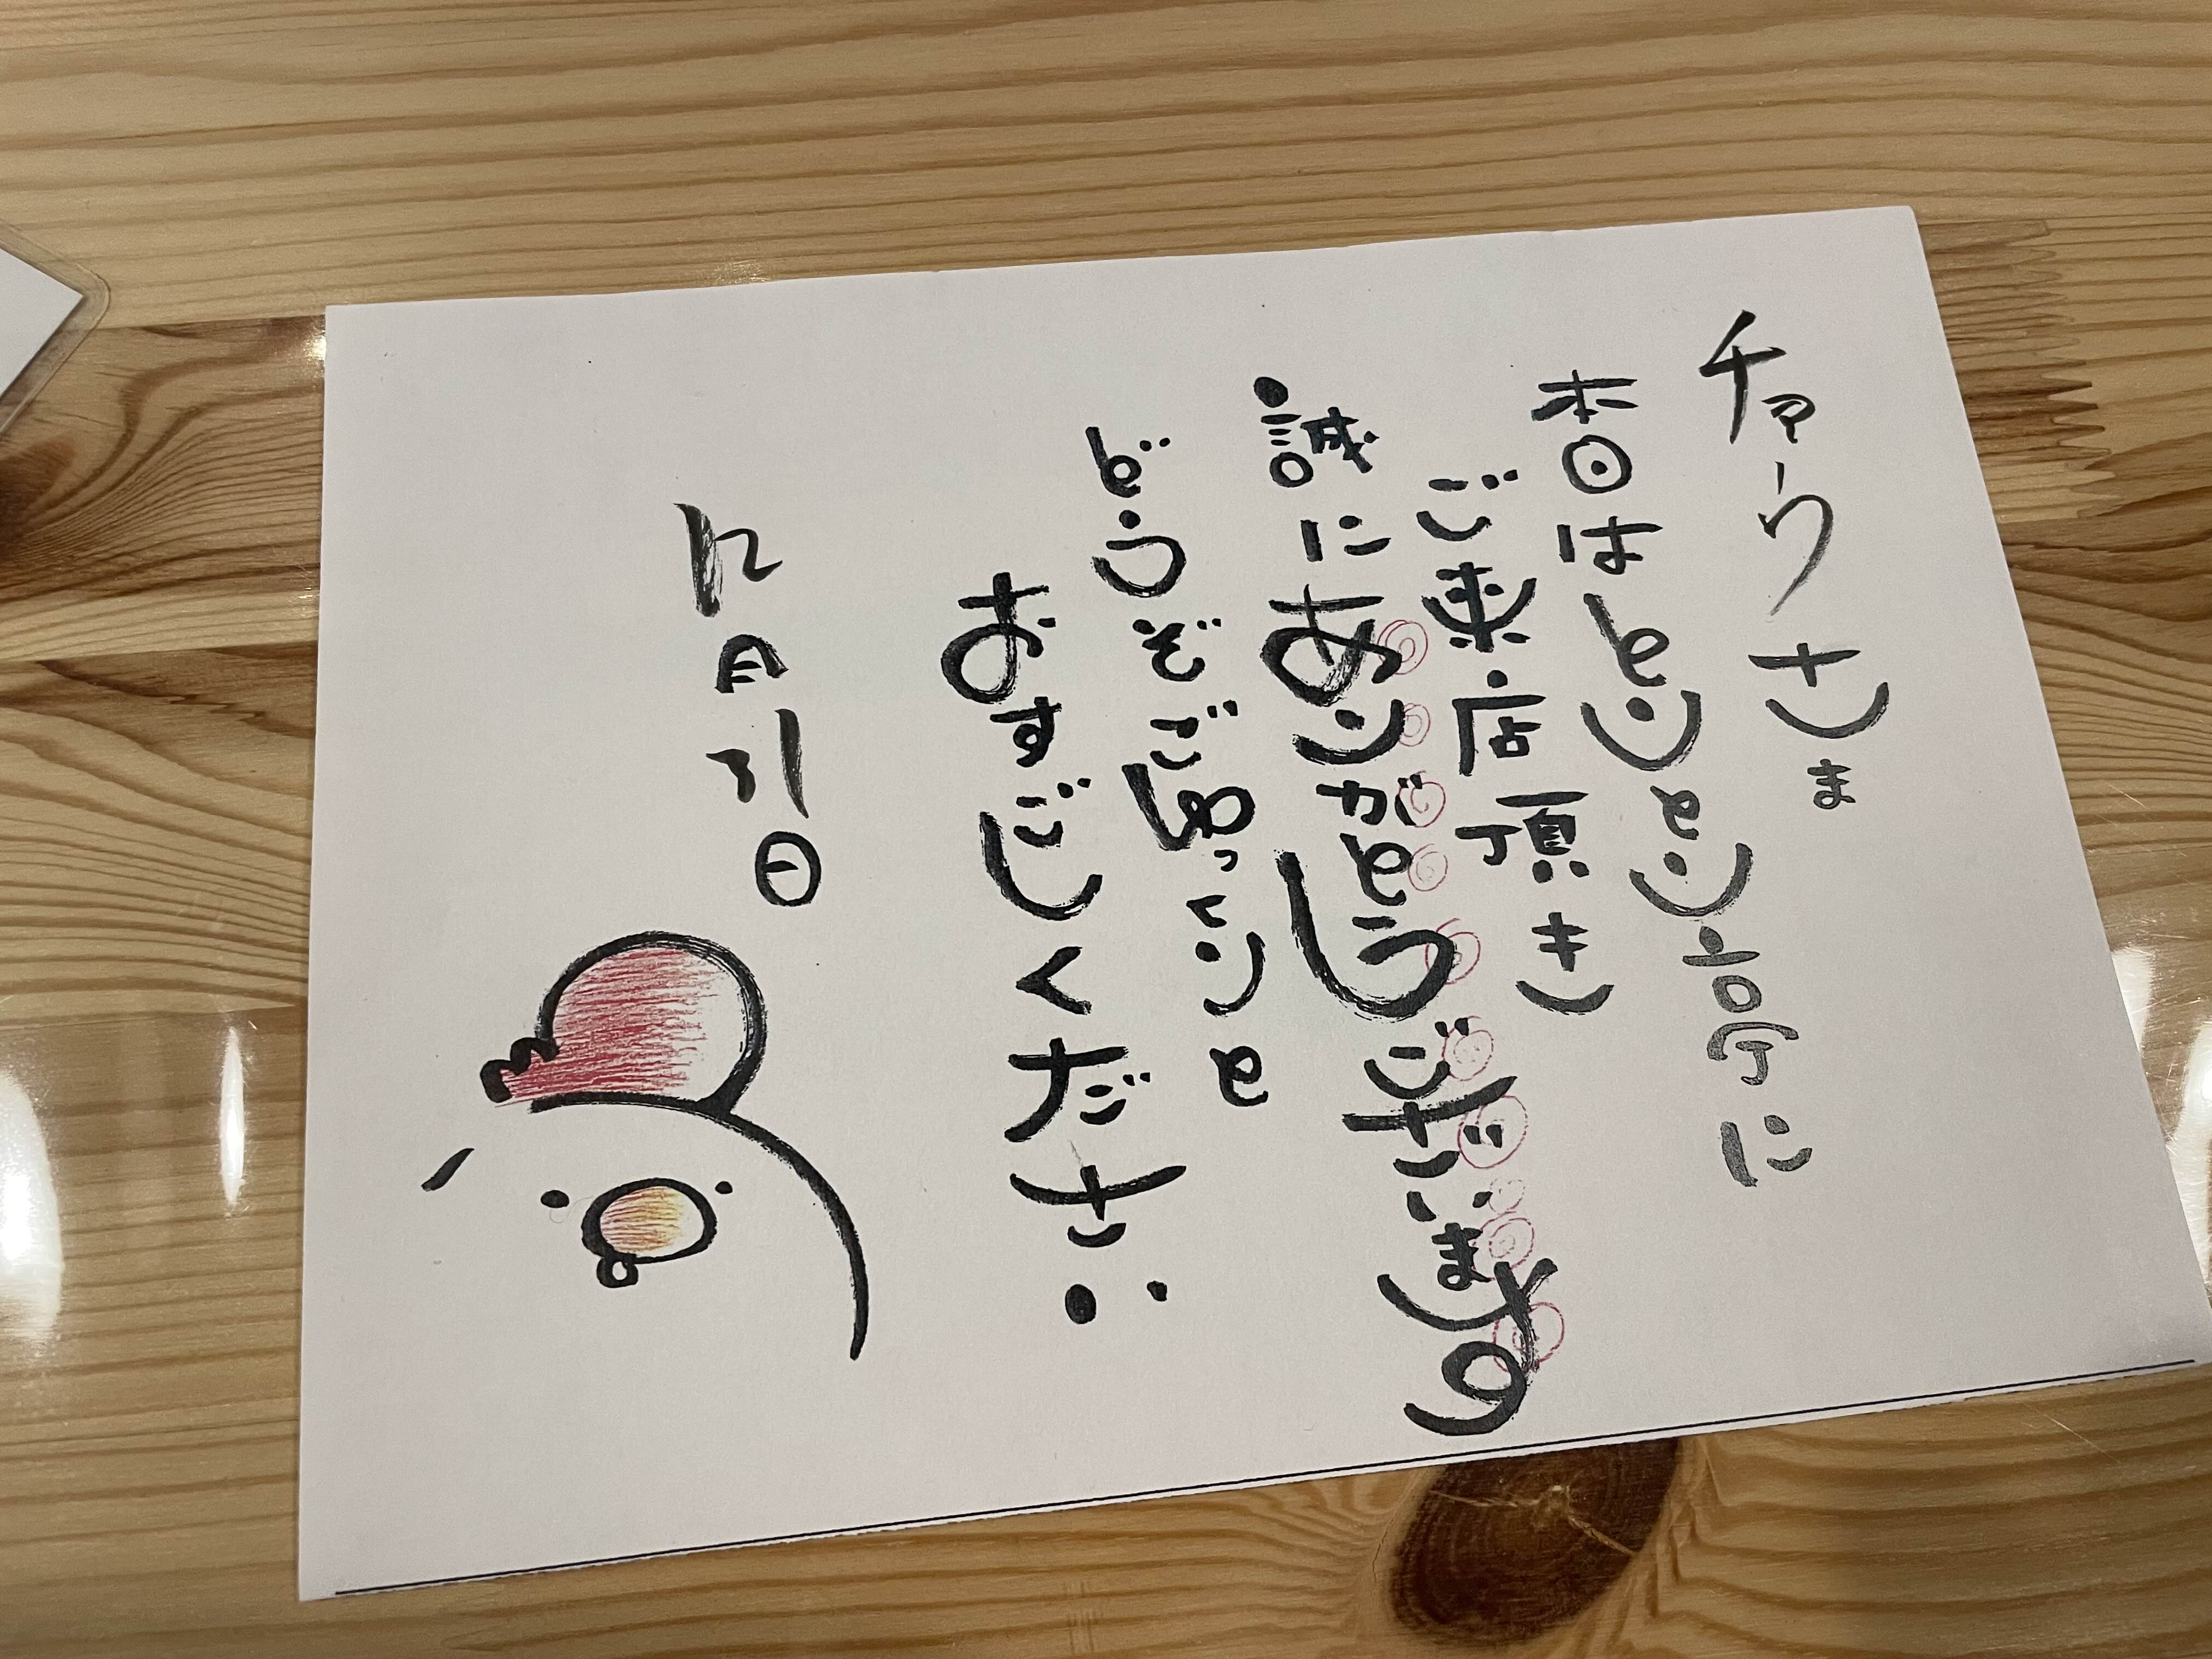 さま
本日はとりとり亭に
ご来店頂き
誠にありがとうございます
どうぞごゆっくりと
おすごしください
12月31日